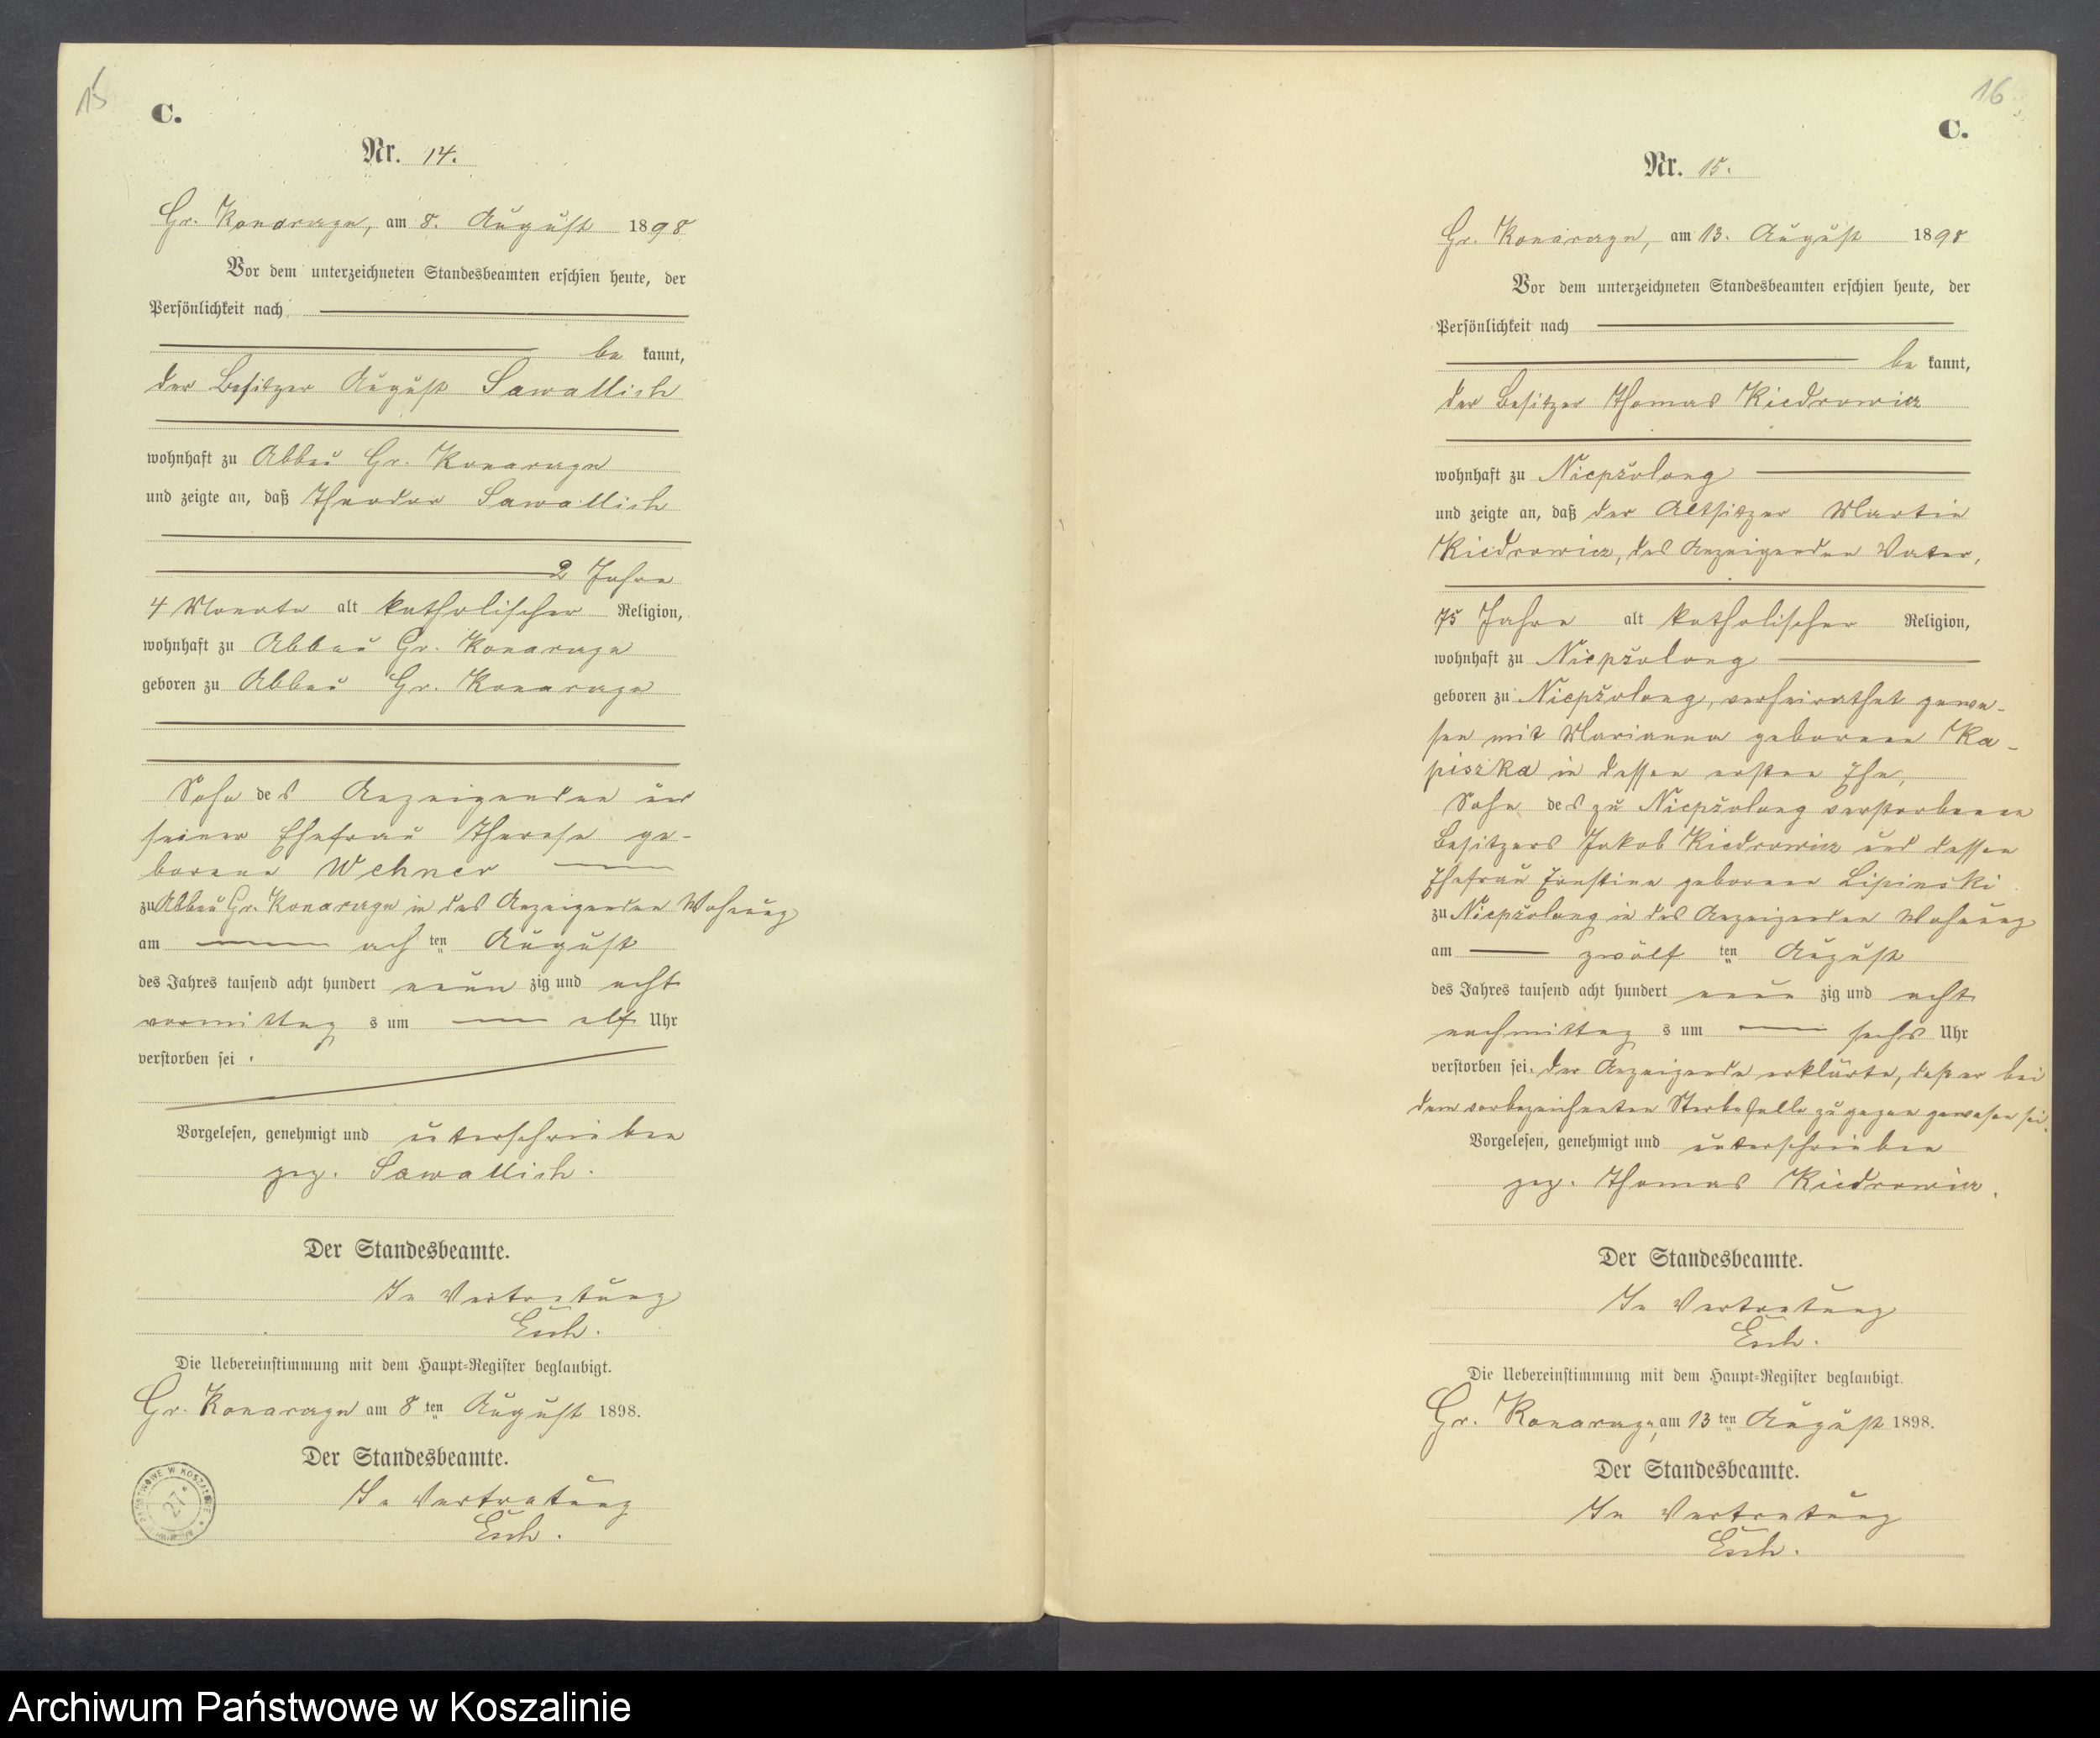 15
C.
Nr. 14.
Gr. Konarzyn, am 8. August 1898
Vor dem unterzeichneten Standesbeamten erschien heute, der
Persönlichkeit nach
be kannt,
der Besitzer August Sawallich
wohnhaft zu Abbau Gr. Konarzyn
und zeigte an, daß Theodor Sawallich
2 Jahre
4 Monate alt katholischer Religion,
wohnhaft zu Abbau Gr. Konarzyn
geboren zu Abbau Gr. Konarzyn
Sohn des Anzeigenden und
seiner Ehefrau Therese ge-
borene Wehner
zu Abbau Gr. Konarzyn in des Anzeigenden Wohnung
am achten August
des Jahres tausend acht hundert neun zig und acht
vormittag s um elf Uhr
verstorben sei.
Vorgelesen, genehmigt und unterschrieben
gez. Sawallich.
Der Standesbeamte.
In Vertretung
Esch.
Die Uebereinstimmung mit dem Haupt-Register beglaubigt.
Gr. Konarzyn am 8 ten August 1898.
Der Standesbeamte.
In Vertretung
Esch.
PAŃSTWOWE W KOSZALINIE
27
16
C.
Nr. 15.
Gr. Konarzyn, am 13. August 1898
Vor dem unterzeichneten Standesbeamten erschien heute, der
Persönlichkeit nach
be kannt,
der Besitzer Thomas Kiedrowicz
wohnhaft zu Niepržolong
und zeigte an, daß der Altsitzer Martin
Kiedrowicz, des Anzeigenden Vater,
75 Jahre alt katholischer Religion,
wohnhaft zu Niepržolong
geboren zu Niepržolong, verheirathet gewe-
sen mit Marianna geborenen Ka-
piszka in dessen ersten Ehe,
Sohn des zu Niepržolong verstorbenen
Besitzers Jakob Kiedrowicz und dessen
Ehefrau Ernstine geborenen Lipinski
zu Niepržolong in des Anzeigenden Wohnung
am zwölf ten August
des Jahres tausend acht hundert neun zig und acht
nachmittag s um sechs Uhr
verstorben sei. Der Anzeigende erklärte, daß er bei
dem vorbezeichneten Sterbefalle zugegen gewesen sei.
Vorgelesen, genehmigt und unterschrieben
gez. Thomas Kiedrowicz.
Der Standesbeamte.
In Vertretung
Esch.
Die Uebereinstimmung mit dem Haupt-Register beglaubigt.
Gr. Konarzyn, am 13 ten August 1898.
Der Standesbeamte.
In Vertretung
Esch.
Archiwum Państwowe w Koszalinie